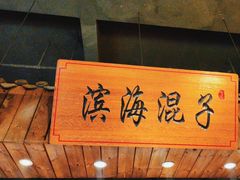 滨海混子